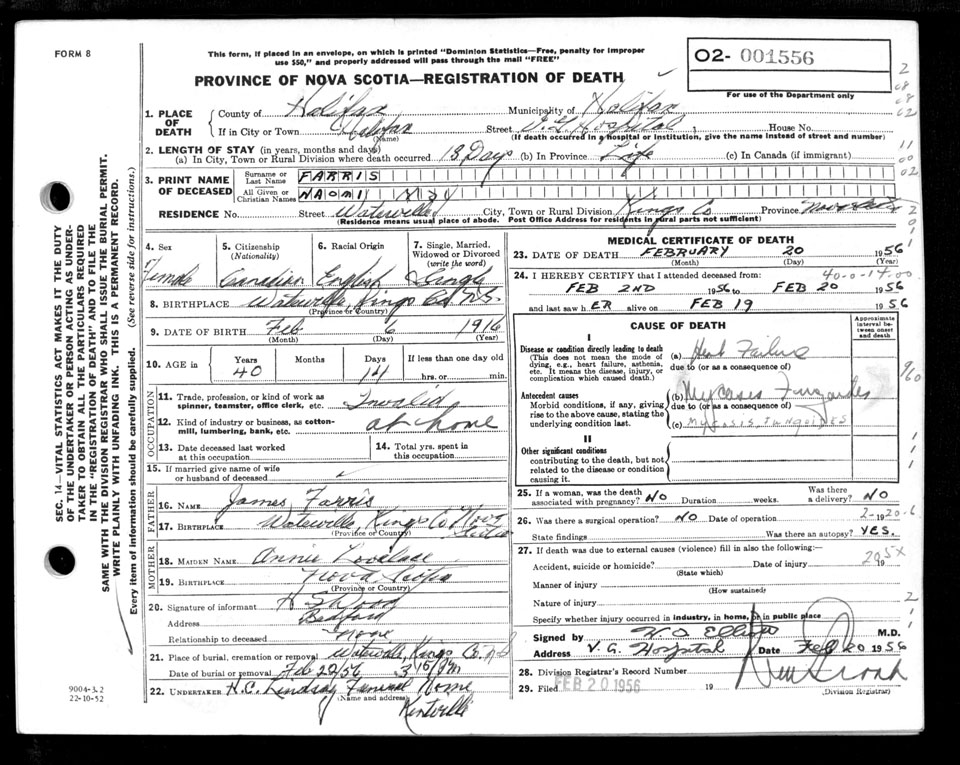 FORM 8
This form, if placed in an envelope, on which is printed "Dominion Statistics—Free, penalty for improper
use $50," and properly addressed will pass through the mail "FREE"
PROVINCE OF NOVA SCOTIA—REGISTRATION OF DEATH
02- 001556
For use of the Department only
1. PLACE OF DEATH
County of Halifax Municipality of Halifax
If in City or Town Halifax Street V.G. Hospital House No.
(Name) (If death occurred in a hospital or institution, give the name instead of street and number)
2. LENGTH OF STAY (in years, months and days)
(a) In City, Town or Rural Division where death occurred 18 Days (b) In Province Life (c) In Canada (if immigrant)
3. PRINT NAME OF DECEASED
Surname or Last Name FARRIS
All Given or Christian Names NAOMI
RESIDENCE No. Street Waterville City, Town or Rural Division Kings Co Province Nova Scotia
(Residence means usual place of abode. Post Office Address for residents in rural parts not sufficient)
4. Sex Female
5. Citizenship (Nationality) Canadian
6. Racial Origin English
7. Single, Married, Widowed or Divorced (write the word) Single
8. BIRTHPLACE Waterville, Kings Co N.S.
(Province or Country)
9. DATE OF BIRTH Feb 6 1916
(Month) (Day) (Year)
10. AGE in Years 40 Months Days 14 If less than one day old hrs. or min.
OCCUPATION
11. Trade, profession, or kind of work as spinner, teamster, office clerk, etc. Invalid
12. Kind of industry or business, as cotton-mill, lumbering, bank, etc. at home
13. Date deceased last worked at this occupation
14. Total yrs. spent in this occupation
15. If married give name of wife or husband of deceased
FATHER
16. NAME James Farris
17. BIRTHPLACE Waterville, Kings Co Nova Scotia
(Province or Country)
MOTHER
18. MAIDEN NAME Annie Lovelace
19. BIRTHPLACE Nova Scotia
(Province or Country)
20. Signature of informant H S Wood
Address Bedford
Relationship to deceased None
21. Place of burial, cremation or removal Waterville, Kings Co. N.S
Date of burial or removal Feb 22/56
22. UNDERTAKER H.C. Lindsay Funeral Home
(Name and address) Kentville
MEDICAL CERTIFICATE OF DEATH
23. DATE OF DEATH FEBRUARY 20 1956
(Month) (Day) (Year)
24. I HEREBY CERTIFY that I attended deceased from: 40-0-14-00
FEB 2ND 1956 to FEB 20 1956
and last saw h ER alive on FEB 19 1956
CAUSE OF DEATH
Approximate interval between onset and death
I
Disease or condition directly leading to death (a) Heart Failure
(This does not mean the mode of dying, e.g., heart failure, asthenia, etc. It means the disease, injury, or complication which caused death.) due to (or as a consequence of)
Antecedent causes (b) Mycosis Fungoides
Morbid conditions, if any, giving rise to the above cause, stating the underlying condition last. due to (or as a consequence of)
(c) MYCOSIS FUNGOIDES
II
Other significant conditions
contributing to the death, but not related to the disease or condition causing it.
25. If a woman, was the death associated with pregnancy? NO Duration weeks. Was there a delivery? NO
26. Was there a surgical operation? NO Date of operation
State findings Was there an autopsy? YES.
27. If death was due to external causes (violence) fill in also the following:—
Accident, suicide or homicide? Date of injury 19
(State which)
Manner of injury
(How sustained)
Nature of injury
Specify whether injury occurred in industry, in home, or in public place
Signed by M.D.
Address V.G. Hospital Date Feb 20 1956
28. Division Registrar's Record Number
29. Filed FEB 20 1956 19
(Division Registrar)
SEC. 14—VITAL STATISTICS ACT MAKES IT THE DUTY
OF THE UNDERTAKER OR PERSON ACTING AS UNDER-
TAKER TO OBTAIN ALL THE PARTICULARS REQUIRED
IN THE "REGISTRATION OF DEATH" AND TO FILE THE
SAME WITH THE DIVISION REGISTRAR WHO SHALL ISSUE THE BURIAL PERMIT.
WRITE PLAINLY WITH UNFADING INK. THIS IS A PERMANENT RECORD.
Every item of information should be carefully supplied. (See reverse side for instructions.)
9004-3.2
22-10-52